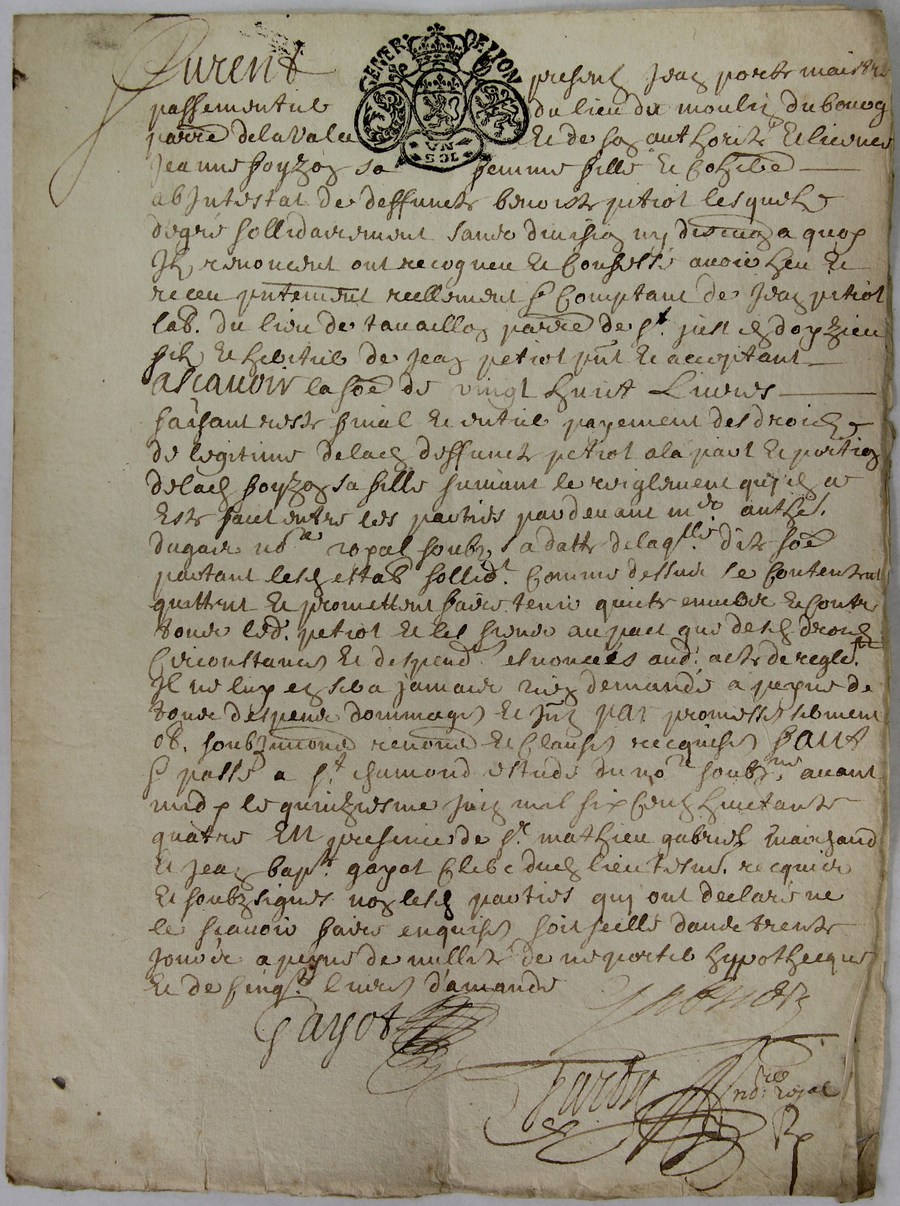 GENER. DE LYON
UN SOL
Furent present Jean porte maistre
passementier du lieu du moulin du
parre de la Vala Et de son authorité Et licence
Jeanne sa femme fille Et Coheritiere
ab Intestat de deffuncte benoiste petiot lesquels
de gré sollidairement sans division ny discution a quoy
Ils renoncent ont recogneu Et Confessé avoir heu Et
receu pntement reellement Et Comptant de Jean petiot
lab. du lieu de tavaillon parre de st. just en doyzieu
fils Et heritier de Jean petiot pnt Et acceptant
ascavoir la soe de vingt huict Livres
faisant reste final Et entier payement des droicts
de legitime de lad deffuncte petiot a la part Et portion
de lad sa fille suivant le reiglement qui en a
Esté faict entre les parties pardevant me anthe.
dugair nore royal soubz sa datte de laqlle dite soe
partant lesd estab sollidt. Comme dessus se Contentent
quittent Et promettent faire tenir quitte envers Et Contre
tous led. petiot Et les siens au pact que desd droicts
Circonstances Et despend. enoncées aud. acte de reglet.
Il ne luy en sera jamais rien demandé a peyne de
tous despens dommages Et Jnt par promesses serment
ob. soubzmons renons Et Clauses recquises FAICT
Et passé a st. chamond estude du nore soubzne avant
midy le quinziesme Juin mil six Cent huictante
quatre EN presence de sr. mathieu gabriel marchand
Et Jean bapt. gayot Clerc dud lieu tesms. recquis
Et soubzsignés non lesd parties qui ont declaré ne
le scavoir faire enquises soit seellé dans trente
jours a peyne de nullité de ne porter hypothecque
Et de Cinqte livres d'amande
Gayot
nore royal